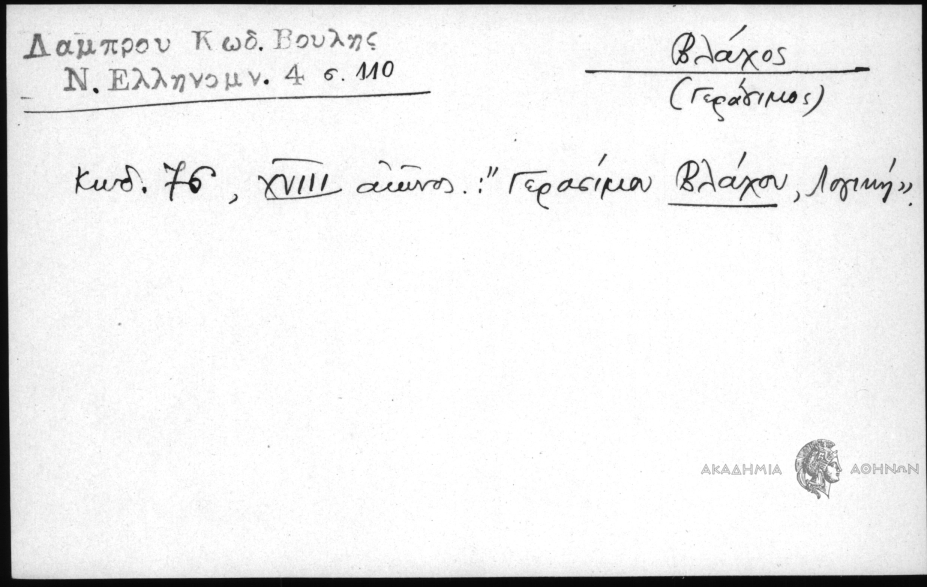 Λαμπρου Κωδ. Βουλης
Ν. Ελληνομν. 4 σ. 110
Βλάχος
(Γεράσιμος)
Κωδ. 76, XVIII αἰῶνος : "Γερασίμου Βλάχου, Λογική».
ΑΚΑΔΗΜΙΑ ΑΘΗΝΩΝ